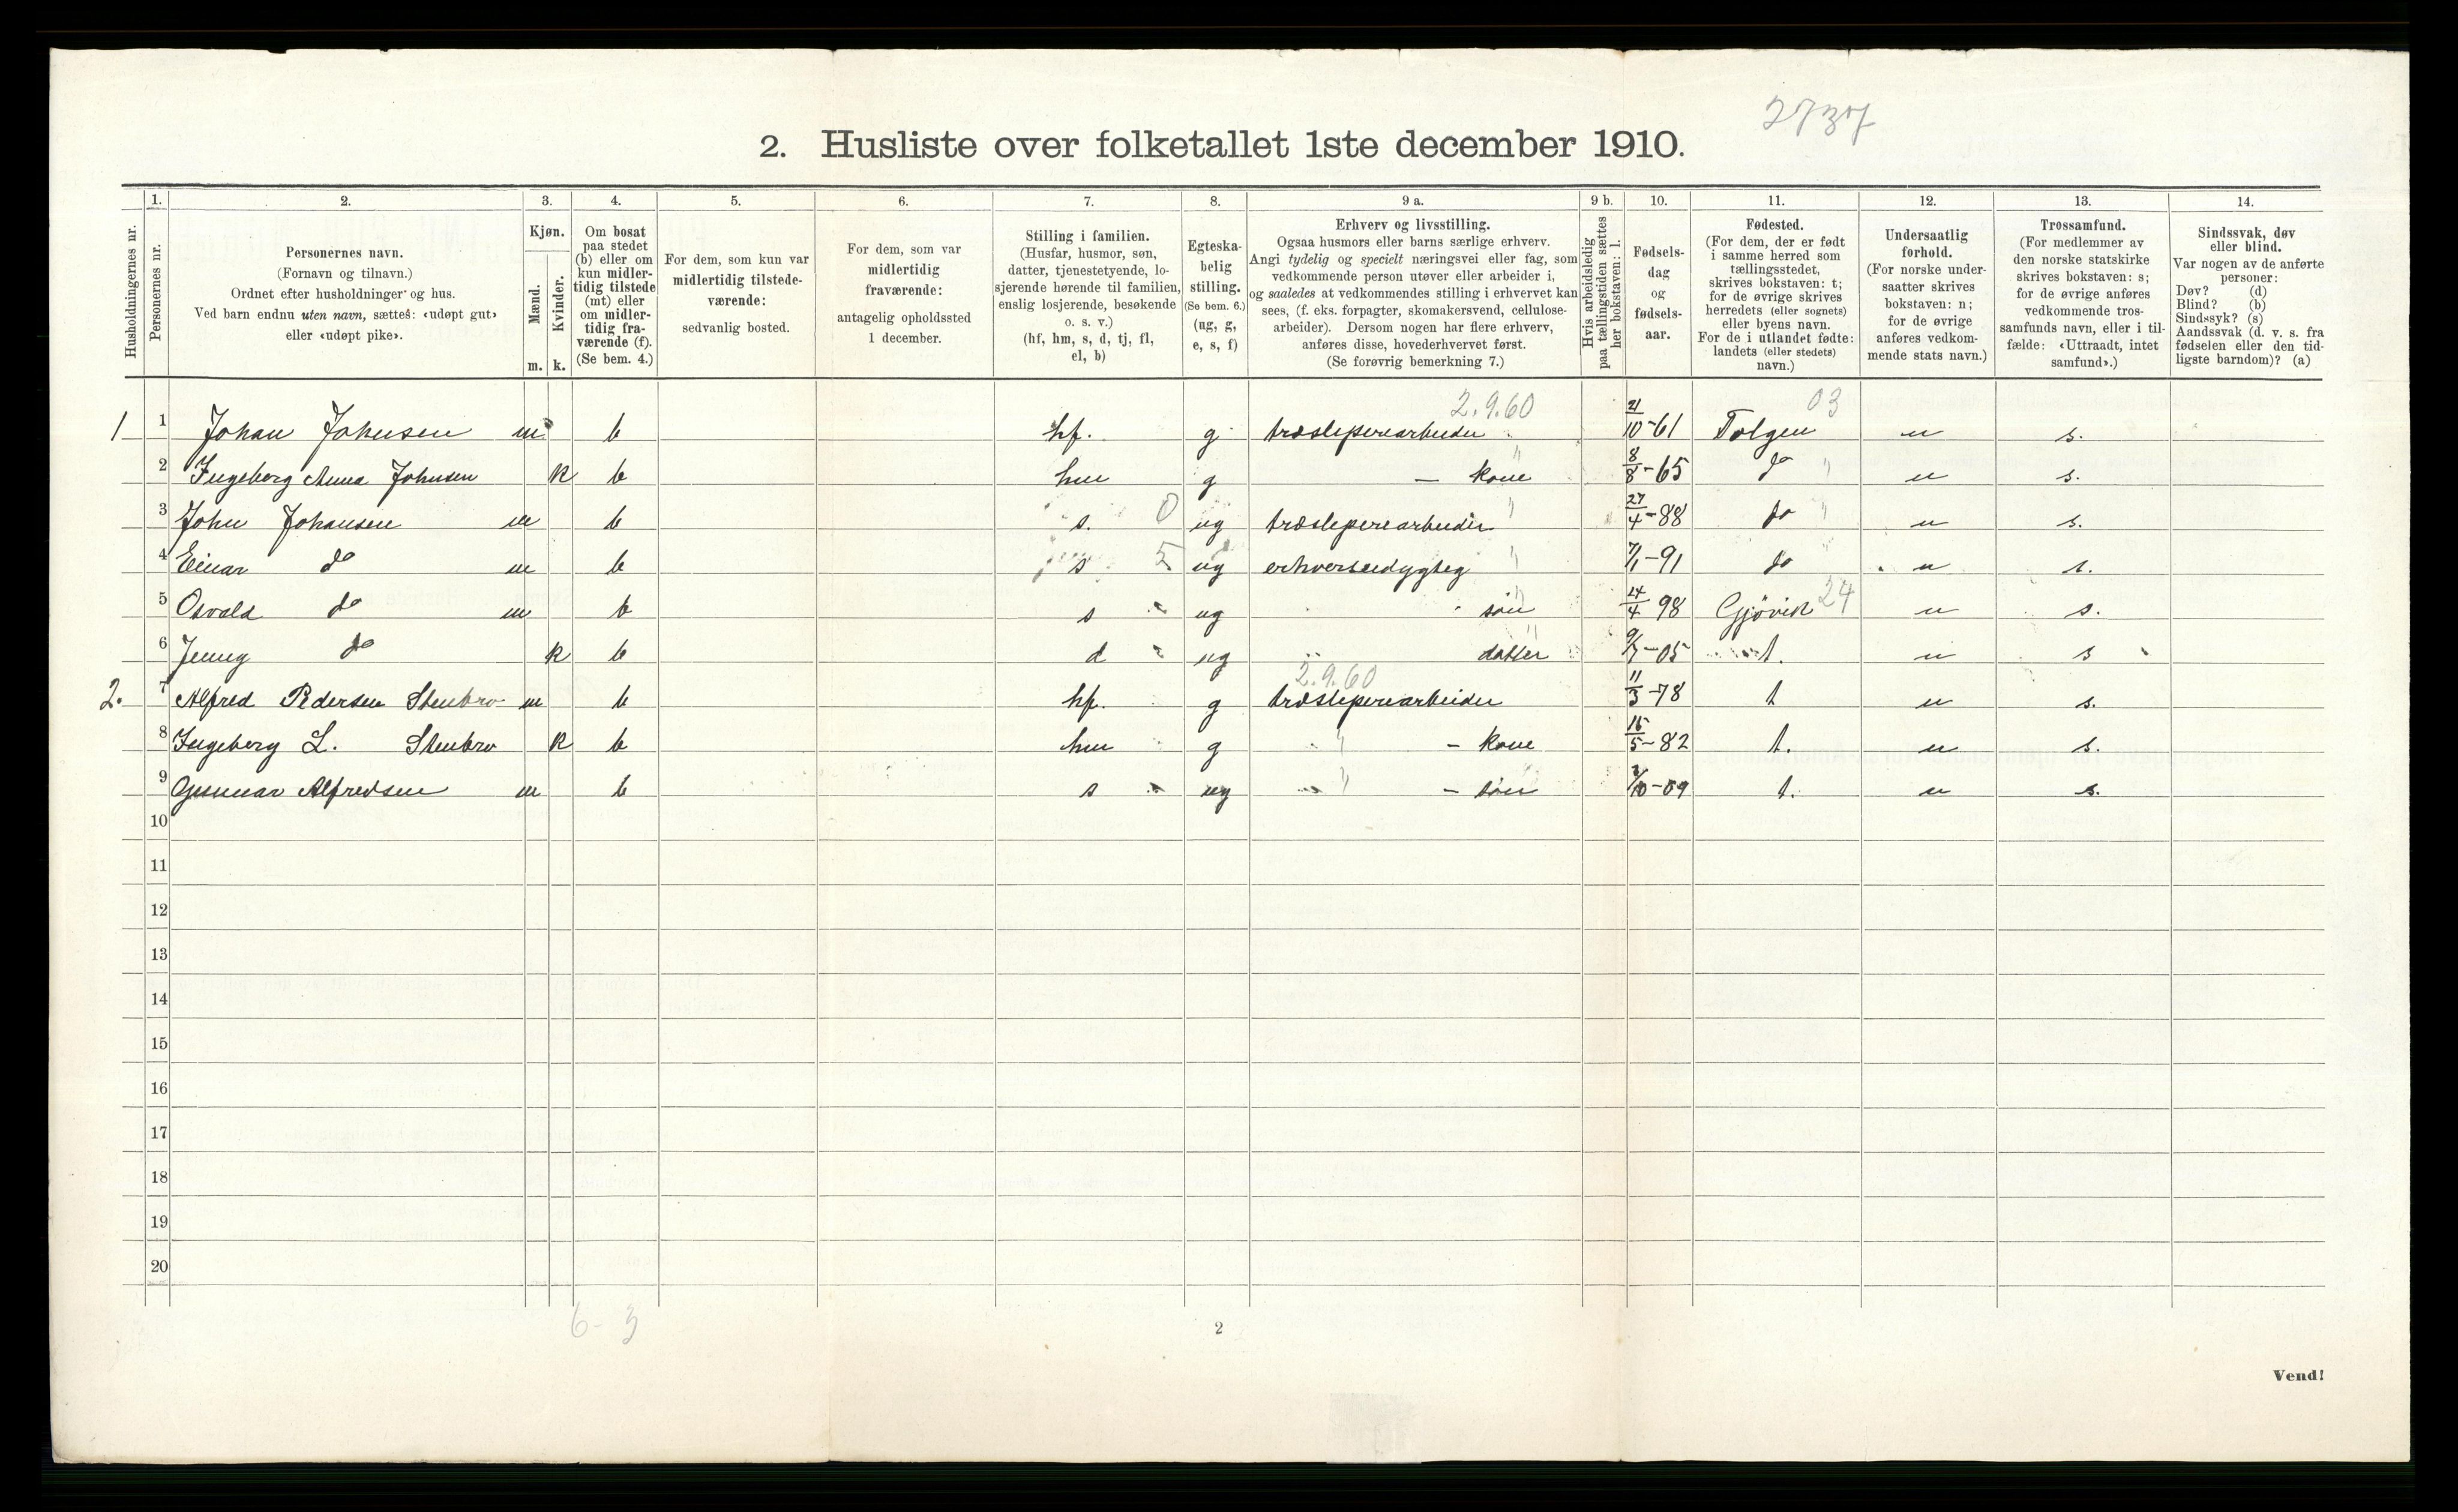 2737
2. Husliste over folketallet 1ste december 1910.
Husholdningernes nr.
1. Personernes nr.
2. Personernes navn. (Fornavn og tilnavn.) Ordnet efter husholdninger og hus. Ved barn endnu uten navn, sættes: «udøpt gut» eller «udøpt pike».
3. Kjøn. Mænd. m. Kvinder. k.
4. Om bosat paa stedet (b) eller om kun midlertidig tilstede (mt) eller om midlertidig fraværende (f). (Se bem. 4.)
5. For dem, som kun var midlertidig tilstedeværende: sedvanlig bosted.
6. For dem, som var midlertidig fraværende: antagelig opholdssted 1 december.
7. Stilling i familien. (Husfar, husmor, søn, datter, tjenestetyende, losjerende hørende til familien, enslig losjerende, besøkende o. s. v.) (hf, hm, s, d, tj, fl, el, b)
8. Egteskabelig stilling. (Se bem. 6.) (ug, g, e, s, f)
9 a. Erhverv og livsstilling. Ogsaa husmors eller barns særlige erhverv. Angi tydelig og specielt næringsvei eller fag, som vedkommende person utøver eller arbeider i, og saaledes at vedkommendes stilling i erhvervet kan sees, (f. eks. forpagter, skomakersvend, cellulosearbeider). Dersom nogen har flere erhverv, anføres disse, hovederhvervet først. (Se forøvrig bemerkning 7.)
9 b. Hvis arbeidsledig paa tællingstiden sættes her bokstaven: l.
10. Fødselsdag og fødselsaar.
11. Fødested. (For dem, der er født i samme herred som tællingsstedet, skrives bokstaven: t; for de øvrige skrives herredets (eller sognets) eller byens navn. For de i utlandet fødte: landets (eller stedets) navn.)
12. Undersaatlig forhold. (For norske undersaatter skrives bokstaven: n; for de øvrige anføres vedkommende stats navn.)
13. Trossamfund. (For medlemmer av den norske statskirke skrives bokstaven: s; for de øvrige anføres vedkommende trossamfunds navn, eller i tilfælde: «Uttraadt, intet samfund».)
14. Sindssvak, døv eller blind. Var nogen av de anførte personer: Døv? (d) Blind? (b) Sindssyk? (s) Aandssvak (d. v. s. fra fødselen eller den tidligste barndom)? (a)
2.9.60 03
1 1 Johan Johnsen m b hf. g træsliperearbeider 21/10-61 Tolgen n s.
2 Ingeborg Anna Johnsen k b hm g — kone 8/8-65 do n s.
3 John Johansen m b s. 0 ug træsliperearbeider 27/4-88 do n s.
4 Einar do m b s 5 ug erhversudygtig 7/1-91 do n s.
5 Osvald do m b s ug søn 24/4 98 Gjövik 24 n s.
6 Jenny do k b d ug datter 9/7-05 t. n s
2.9.60
2. 7 Alfred Pedersen Stenbro m b hf. g træsliperearbeider 11/3-78 t n s.
8 Ingeborg L. Stenbro k b hm g " - kone 15/5-82 t. n s.
9 Gunnar Alfredsen m b s ug " - søn 3/10-09 t. n s.
10
11
12
13
14
15
16
17
18
19
20
6-3
2
Vend!